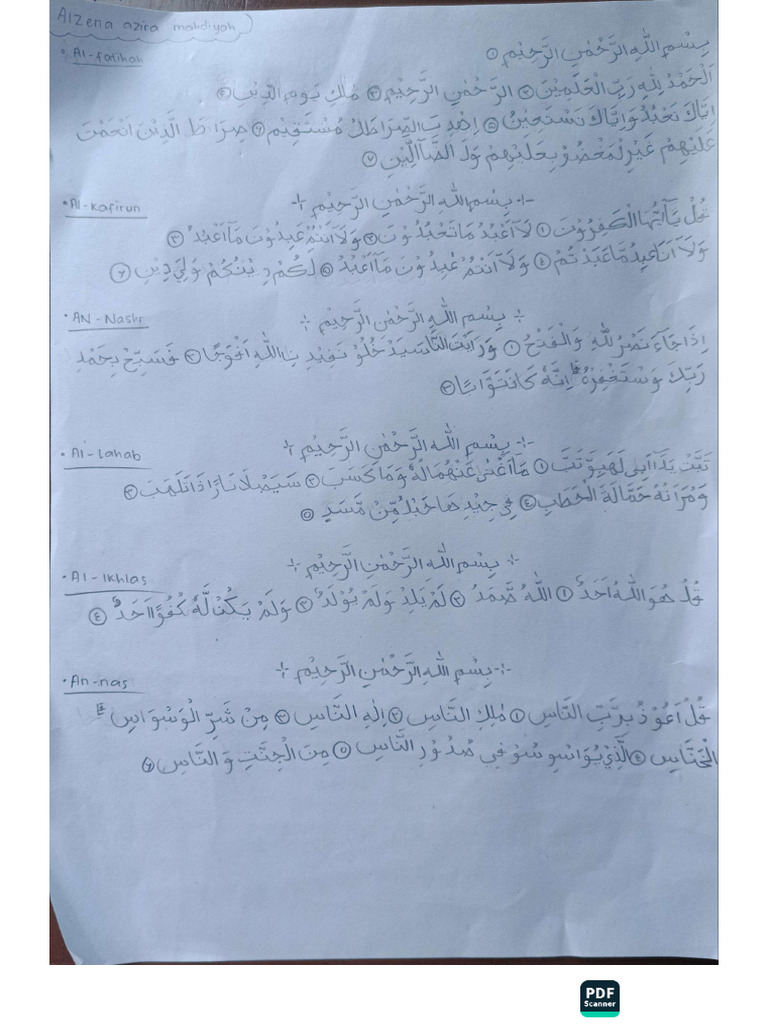 Alzena azira mahdiyah
• Al-fatihah
بِسْمِ اللّٰهِ الرَّحْمٰنِ الرَّحِيْمِ ١
اَلْحَمْدُ لِلّٰهِ رَبِّ الْعٰلَمِيْنَ ٢ الرَّحْمٰنِ الرَّحِيْمِ ٣ مٰلِكِ يَوْمِ الدِّيْنِ ٤
اِيَّاكَ نَعْبُدُ وَاِيَّاكَ نَسْتَعِيْنُ ٥ اِهْدِ الصِّرَاطَ مُسْتَقِيْمَ ٦ صِرَاطَ الَّذِيْنَ اَنْعَمْتَ
عَلَيْهِمْ غَيْرِ لمَغْضُوْبِ عَلَيْهِمْ وَلَ الضَّاۤلِّيْنَ ٧
• Al-Kafirun
بِسْمِ اللّٰهِ الرَّحْمٰنِ الرَّحِيْمِ
قُلْ يٰٓاَيُّهَا الْكٰفِرُوْنَ ١ لَآ اَعْبُدُ مَا تَعْبُدُوْنَ ٢ وَلَآ اَنْتُمْ عٰبِدُوْنَ مَآ اَعْبُدُ ٣
وَلَآ اَنَا۠ عَابِدٌ مَّا عَبَدْتُّمْ ٤ وَلَآ اَنْتُمْ عٰبِدُوْنَ مَآ اَعْبُدُ ٥ لَكُمْ دِيْنُكُمْ وَلِيَ دِيْنِ ٦
• AN-Nashr
بِسْمِ اللّٰهِ الرَّحْمٰنِ الرَّحِيْمِ
اِذَا جَاۤءَ نَصْرُ لِلّٰهِ وَالْفَتْحُ ١ وَرَاَيْتَ النَّاسَ يَدْخُلُوْ فِيْ دِيْنِ اللّٰهِ اَفْوَجًا ٢ فَسَبِّحْ بِحَمْدِ
رَبِّكَ وَسْتَغْفِرْهُ ۗ اِنَّهٗ كَانَ تَوَّابًا ٣
• Al-Lahab
بِسْمِ اللّٰهِ الرَّحْمٰنِ الرَّحِيْمِ
تَبَّتْ يَدَآ اَبِيْ لَهَبٍ وَّتَبَّ ١ مَآ اَغْنٰى عَنْهُ مَالُهٗ وَمَا كَسَبَ ٢ سَيَصْلَا نَارًا ذَاتَ لَهَبَ ٣
وَمْرَاَتُهُ حَمَّالَةَ الْحَطَبِ ٤ فِيْ جِيْدِهَا حَبْلٌ مِّنْ مَّسَدٍ ٥
• Al-Ikhlas
بِسْمِ اللّٰهِ الرَّحْمٰنِ الرَّحِيْمِ
قُلْ هُوَ اللّٰهُ اَحَدٌ ١ اَللّٰهُ صَّمَدُ ٢ لَمْ يَلِدْ وَلَمْ يُوْلَدْ ٣ وَلَمْ يَكُنْ لَّهٗ كُفُوًا اَحَدٌ ٤
• An-nas
بِسْمِ اللّٰهِ الرَّحْمٰنِ الرَّحِيْمِ
قُلْ اَعُوْذُ بِرَبِّ النَّاسِ ١ مَلِكِ النَّاسِ ٢ اِلٰهِ النَّاسِ ٣ مِنْ شَرِّ الْوَسْوَاسِ
الْخَنَّاسِ ٤ الَّذِيْ يُوَاسْوِسُوْ فِيْ صُدُوْرِ النَّاسِ ٥ مِنَ الْجِنَّتِ وَ النَّاسِ ٦
PDF
Scanner